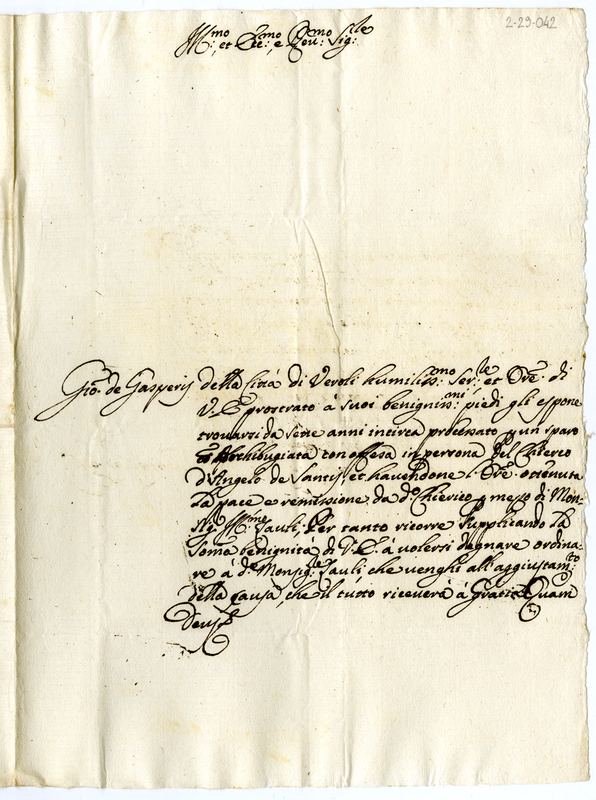 2-29-042
Ill:mo et Ecc:mo e Rev:mo Sig:le
Gio: de Gasperis della Città di Veroli humiliss:mo Ser:le et Ore: di
V. E. prostrato à suoi benigniss:mi piedi gli espone
trovarsi da sette anni incirca processato p un sparo
Archibugiata con offesa in persona del Chierco
D'Angelo de Santis, et havendone l'Ore ottenuta
la pace e remissione da do Chierico p mezo di Mon-
sig:r Ill:mo Sauli; Per tanto ricorre supplicando la
somă benignità di V. E. à volersi degnare ordina-
re à de Monsig:re Sauli, che venghi all'aggiustam:to
della causa, che il tutto riceverà à gratia Quam
Deus